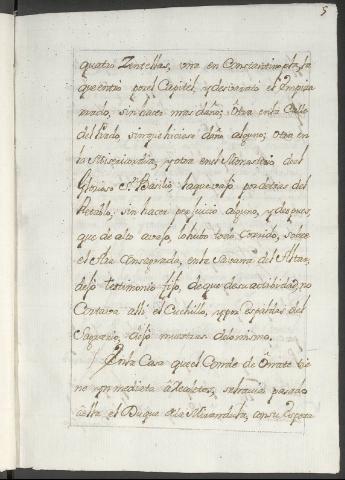 5
quatro Zentellas, vna en Constantinopla, la
que entro por el Capitel, y desbarato el Empiza
rrado, sin hacer mas daño; otra en la Calle
del Prado, sin que hiciese daño alguno; otra en
la Misericordia, y otra en el Monasterio de el
Glorioso Sn. Basilio, la que vajo por detras del
Retablo, sin hacer perjuicio alguno, y despues,
que de alto avajo, lo hubo todo Corrido, sobre
el Ara Consagrada, entre Savana del Altar,
dejó testimonio fijo, de que de su actibidad, no
Cortava alli el Cuchillo, y por espaldas del
Sagrario, dejó muestras de lo mismo.
En la Casa que el Conde de Oñate tie
ne inmediata a Descalzas, se havia pasado
a ella el Duque de la Mirandula, con su Esposa